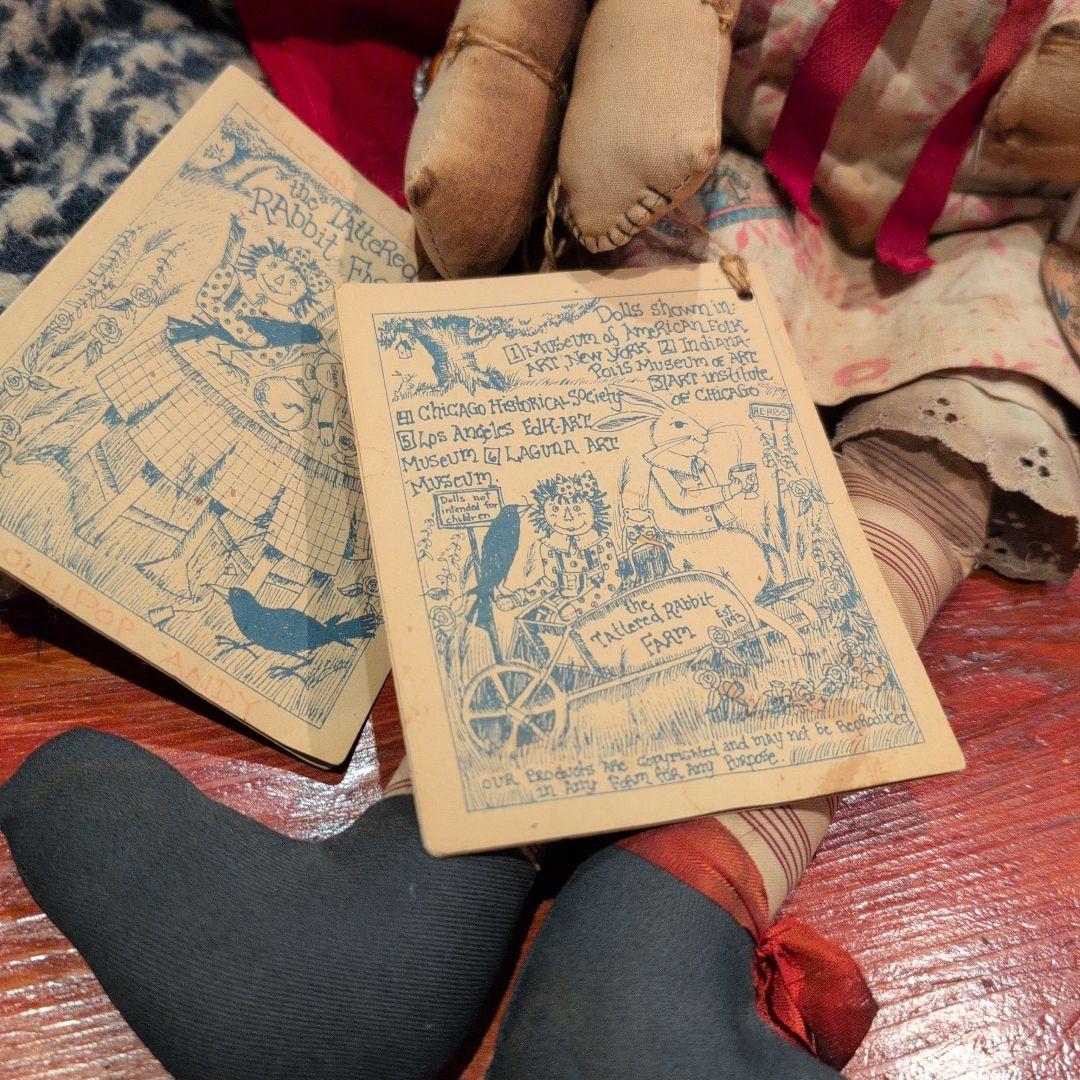 Museum
the TAtteRed
RAbbit FA
OLLIPOP ANDY
Dolls shown in:
[1] Museum of AmeRICAN FOLK
ART, New YORK [2] Indiana-
Polis Museum of ART
[3] ART institute
of CHICAGO
[4] Chicago HistoRical-Society
[5] Los Angeles FolK-ART
Museum [6] LAGUNA ART
Museum.
HERBS
Dolls not
intended for
children
the
TAttered RAbbit
FARM
EST.
OUR PRoducts ARe copyRighted and may not be RepRoduced
in Any FoRm FoR Any PuRpose.